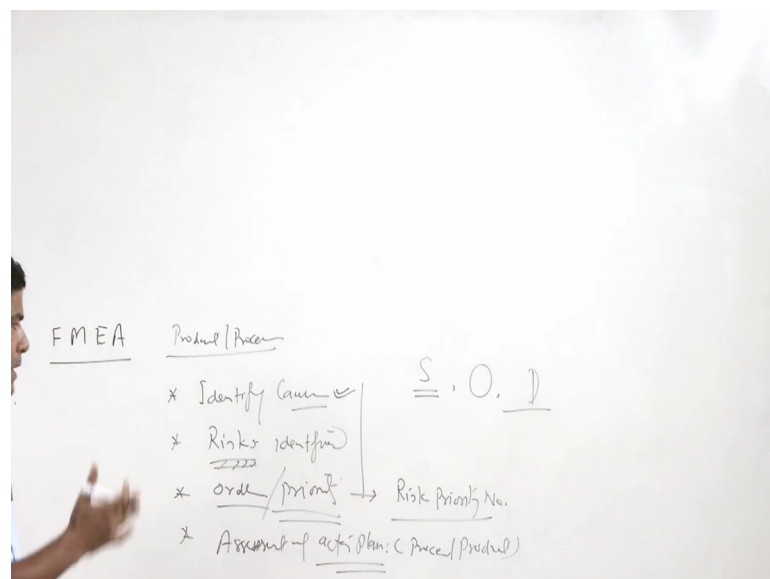 FMEA Product/Process
* Identify Causes ✓
S, O, D
* Risks identified
* Order/priority → Risk Priority No.
* Assessment of action plan: (Process/Product)